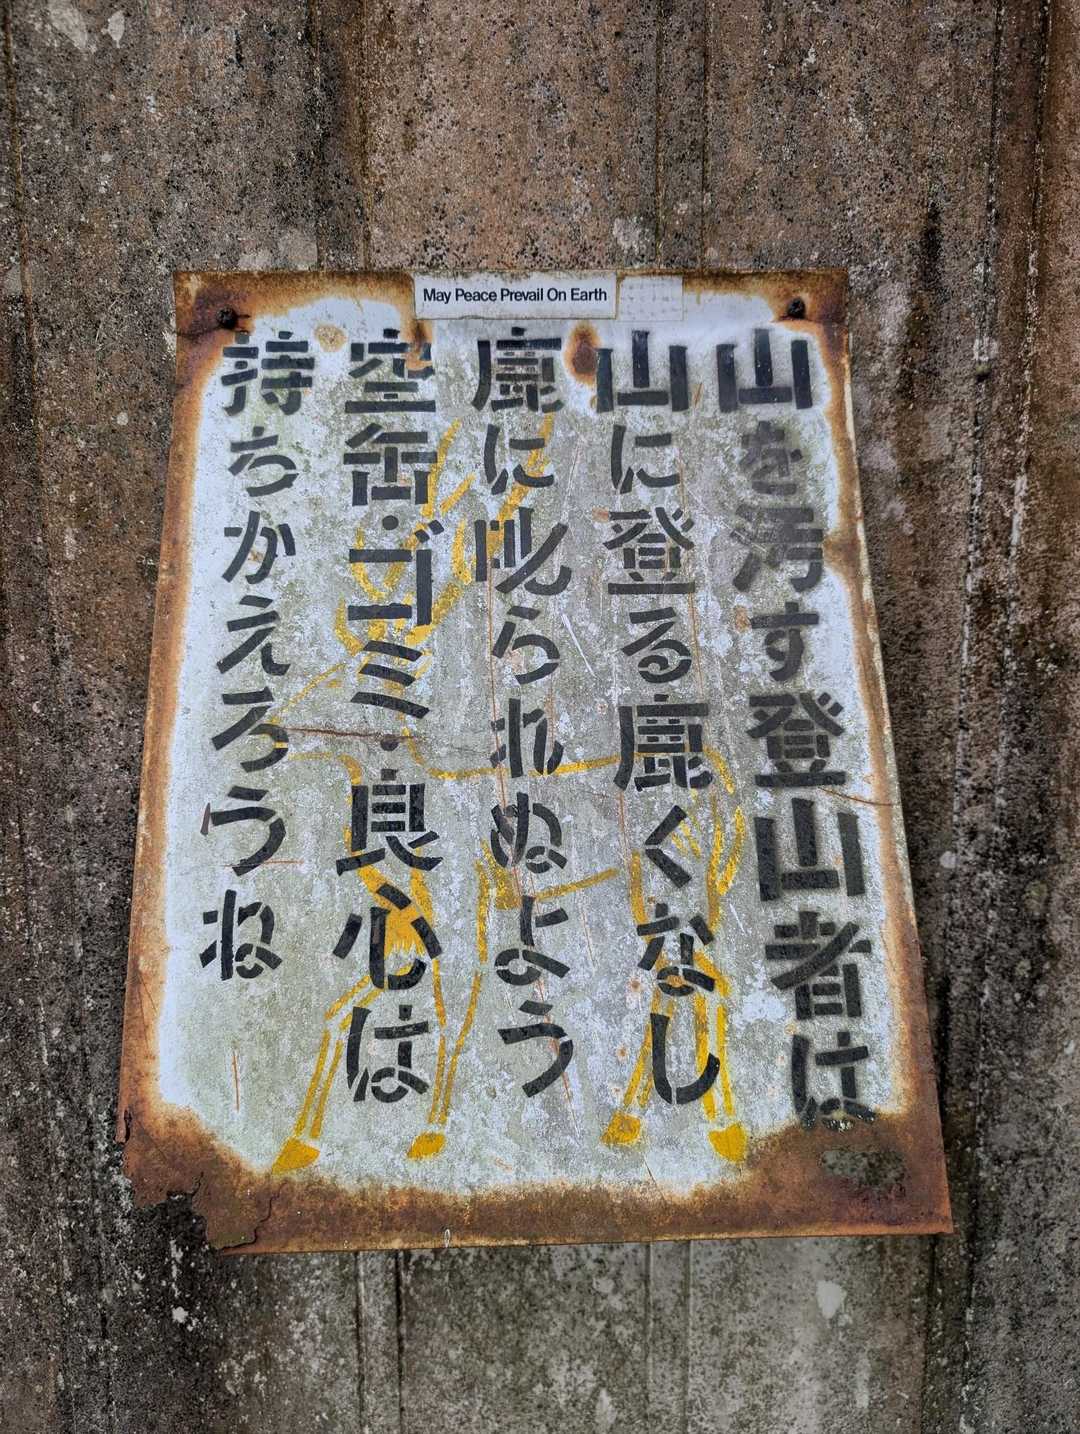 May Peace Prevail On Earth
山を汚す登山者は
山に登る鹿くなし
鹿に叱られぬよう
空缶・ゴミ・良心は
持ちかえろうね